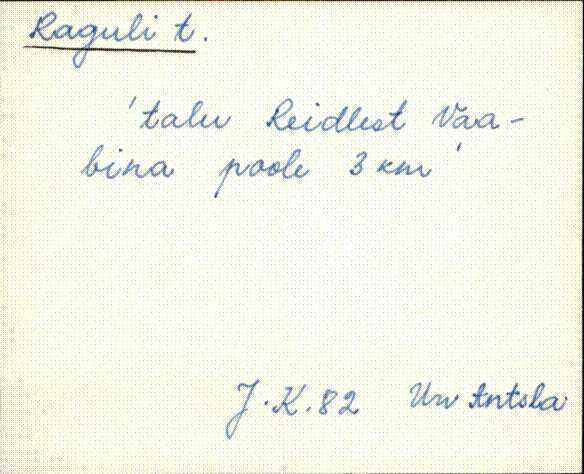 Raguli t.
'talu Reidlest Vaa-
bina poole 3 km'
J.K. 82 Urv Antsla